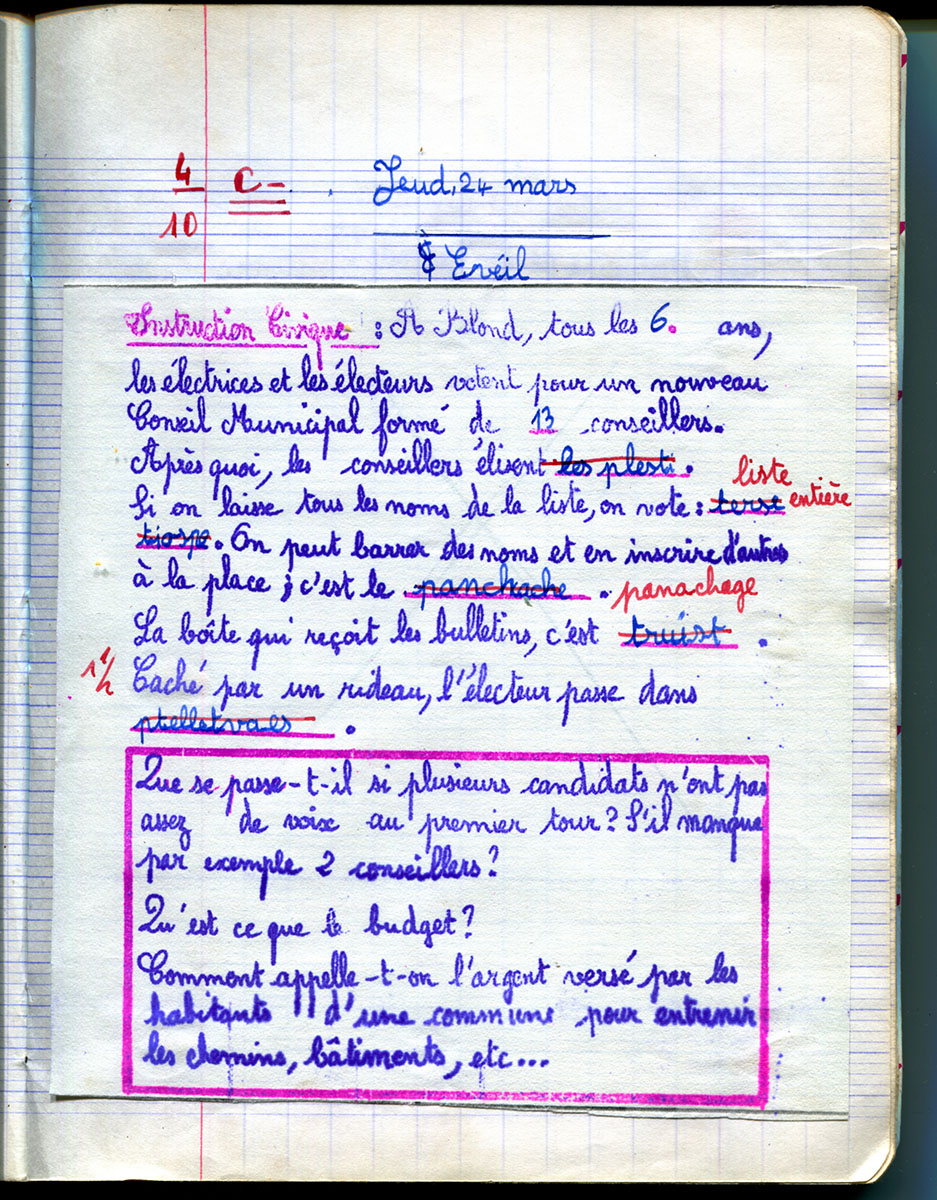 4
10
C-
Jeudi 24 mars
Eveil
Instruction Civique : A Blond, tous les 6. ans,
les électrices et les électeurs votent pour un nouveau
Conseil Municipal formé de 13 conseillers.
Après quoi, les conseillers élisent les plesti.
liste
Si on laisse tous les noms de la liste, on vote : terse entière
tiospe. On peut barrer des noms et en inscrire d'autres
à la place ; c'est le panchache. panachage
La boîte qui reçoit les bulletins, c'est truist.
1 1/2 Caché par un rideau, l'électeur passe dans
ptelletvaes.
Que se passe-t-il si plusieurs candidats n'ont pas
assez de voix au premier tour ? S'il manque
par exemple 2 conseillers ?
Qu'est ce que le budget ?
Comment appelle-t-on l'argent versé par les
habitants d'une commune pour entrenir
les chemins, bâtiments, etc...